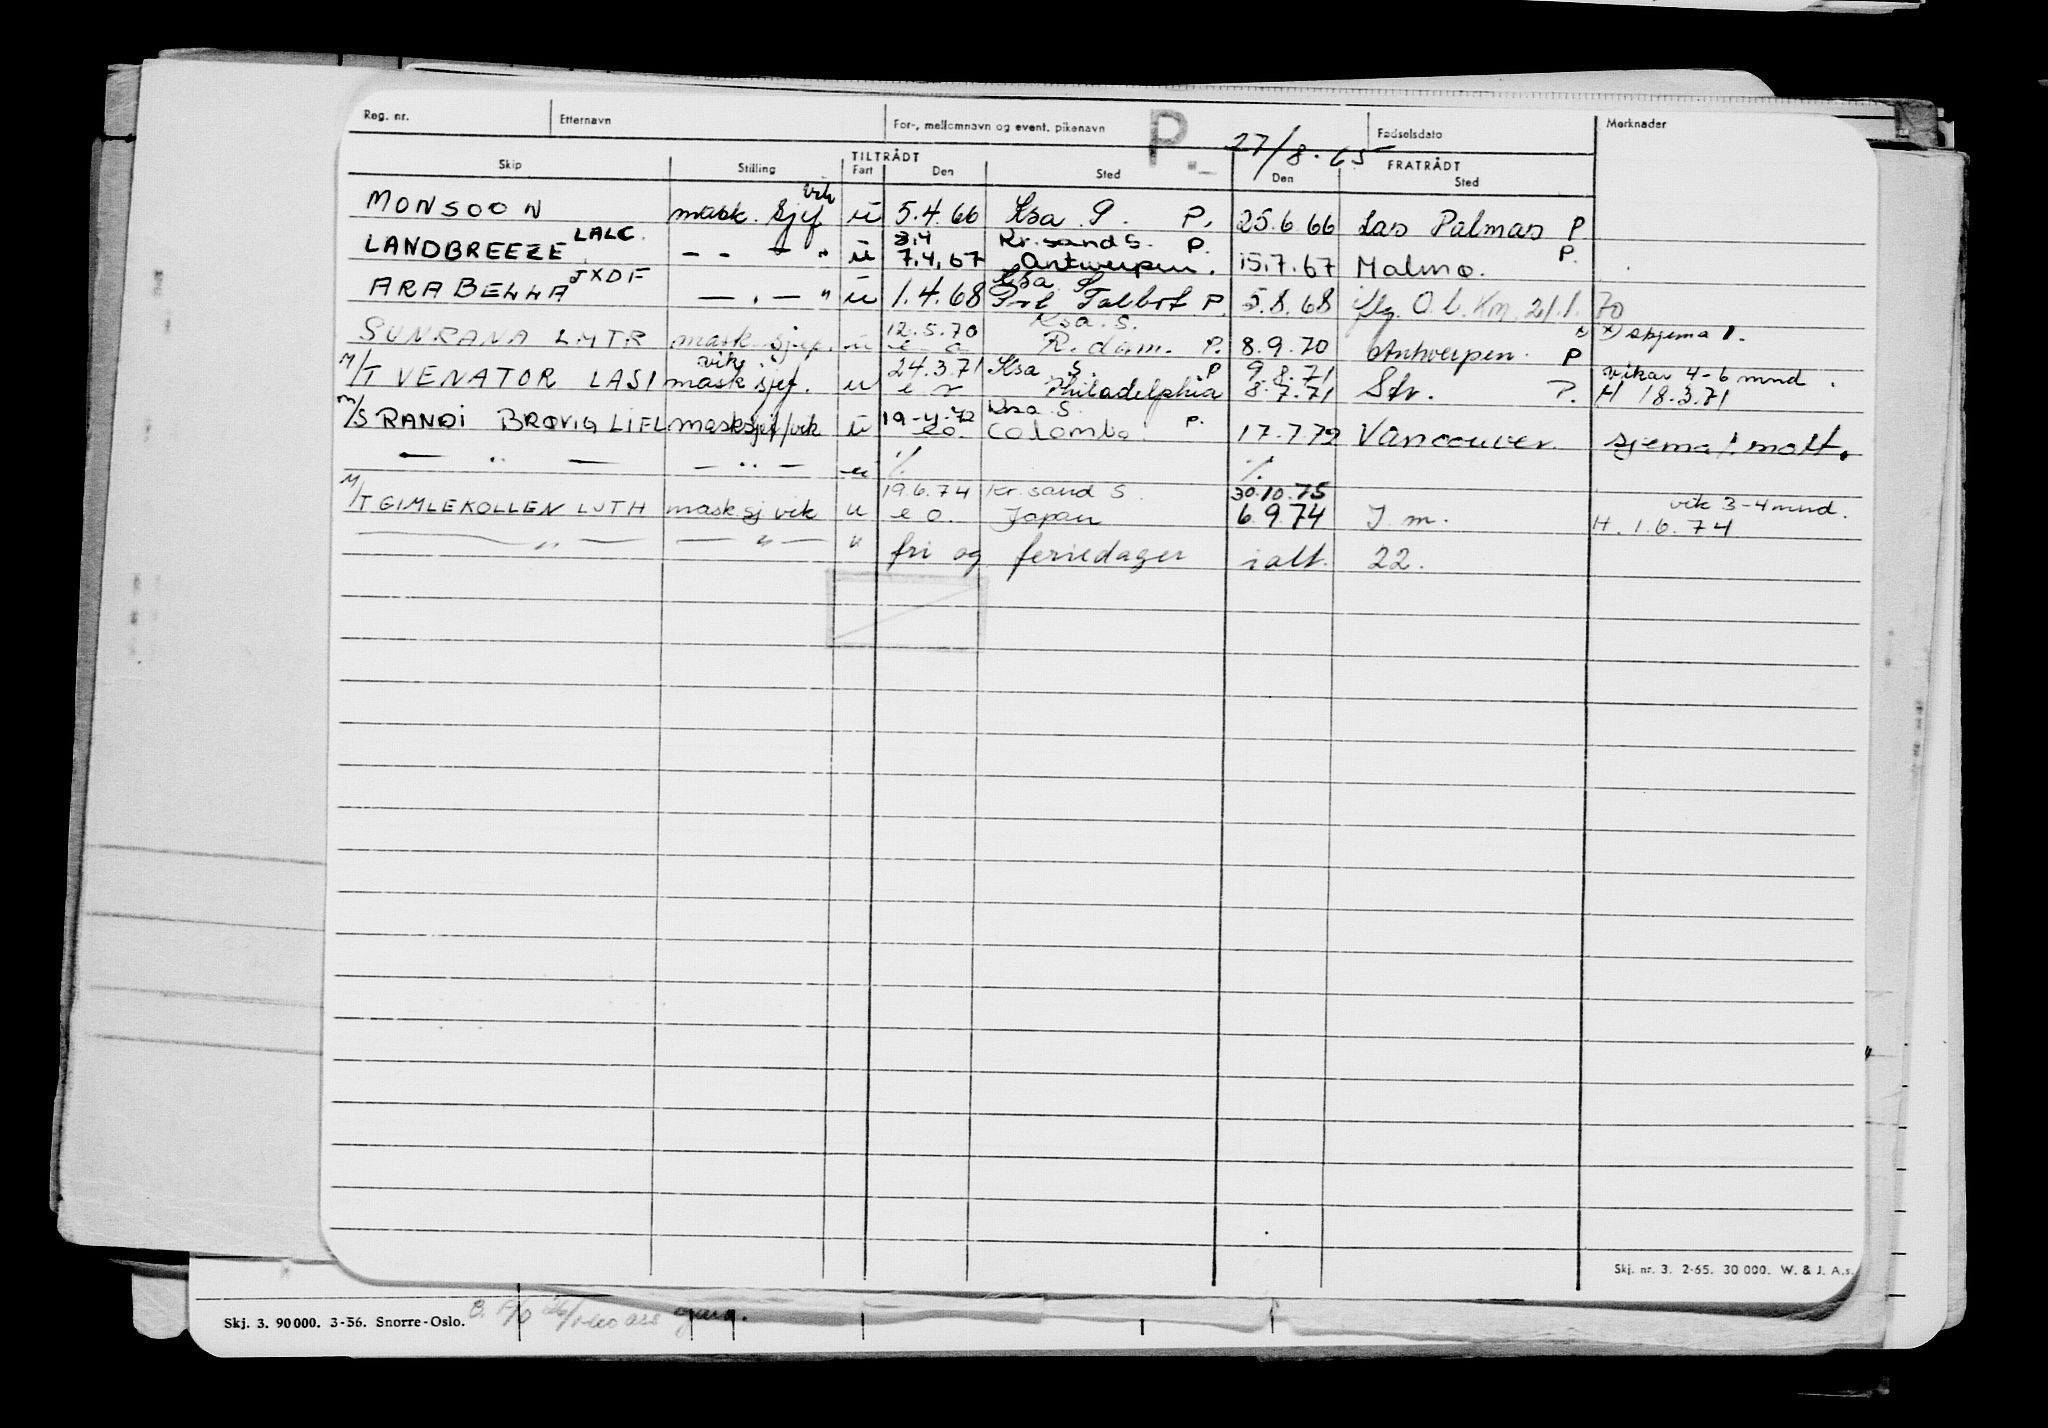 Reg. nr. Etternavn For-, mellomnavn og event. pikenavn P. 27/8.65 Fødselsdato Merknader
Skip Stilling TILTRÅDT Fart Den Sted FRATRÅDT Den Sted
MONSOON mask. sjef vik u 5.4.66 Ksa S. P. 25.6.66 Las Palmas P
LANDBREEZE LALC. - - - " u 3.4 Kr.sand S. P.
7.4.67 Antwerpen. 15.7.67 Malmø. P.
ARABELLA JXDF - . - " u 1.4.68 Ksa S
Port Talbot P. 5.8.68 flg. O.b. Km. 21.1.70
SUNRANA LMTR mask. sjef. u 12.5.70 Ksa. S.
e o R.dam. P. 8.9.70 Antwerpen. P x) skjema 1.
M/T VENATOR LASI mask sjef. vik. u 24.3.71 Ksa S. P 9.8.71 vikar 4-6 mnd.
Philadelphia 8.7.71 Str. P. H 18.3.71
M/S RANDI BRØVIG LIEL masksjef/vik u 19-4-72 Krsa S.
eo. Colombo. P. 17.7.72 Vancouver sjema 1 mott.
- " - - " - u ./. ./.
M/T GIMLEKOLLEN LJTH mask sj vik u 19.6.74 Kr.sand S. 30.10.75 vik 3-4 mnd.
e o. Japan 6.9.74 J.m. H. 1.6.74
- " - - " - " fri og feriedager ialt. 22.
Skj. nr. 3. 2-65. 30 000. W. & J. A.s.
Skj. 3. 90000. 3-56. Snorre-Oslo.